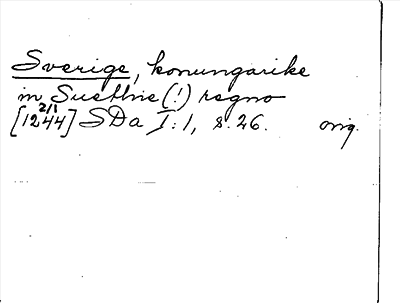 Sverige, konungarike
in Suethie (!) regno
[1244] 2/1 SDa I:1, s. 26. orig.